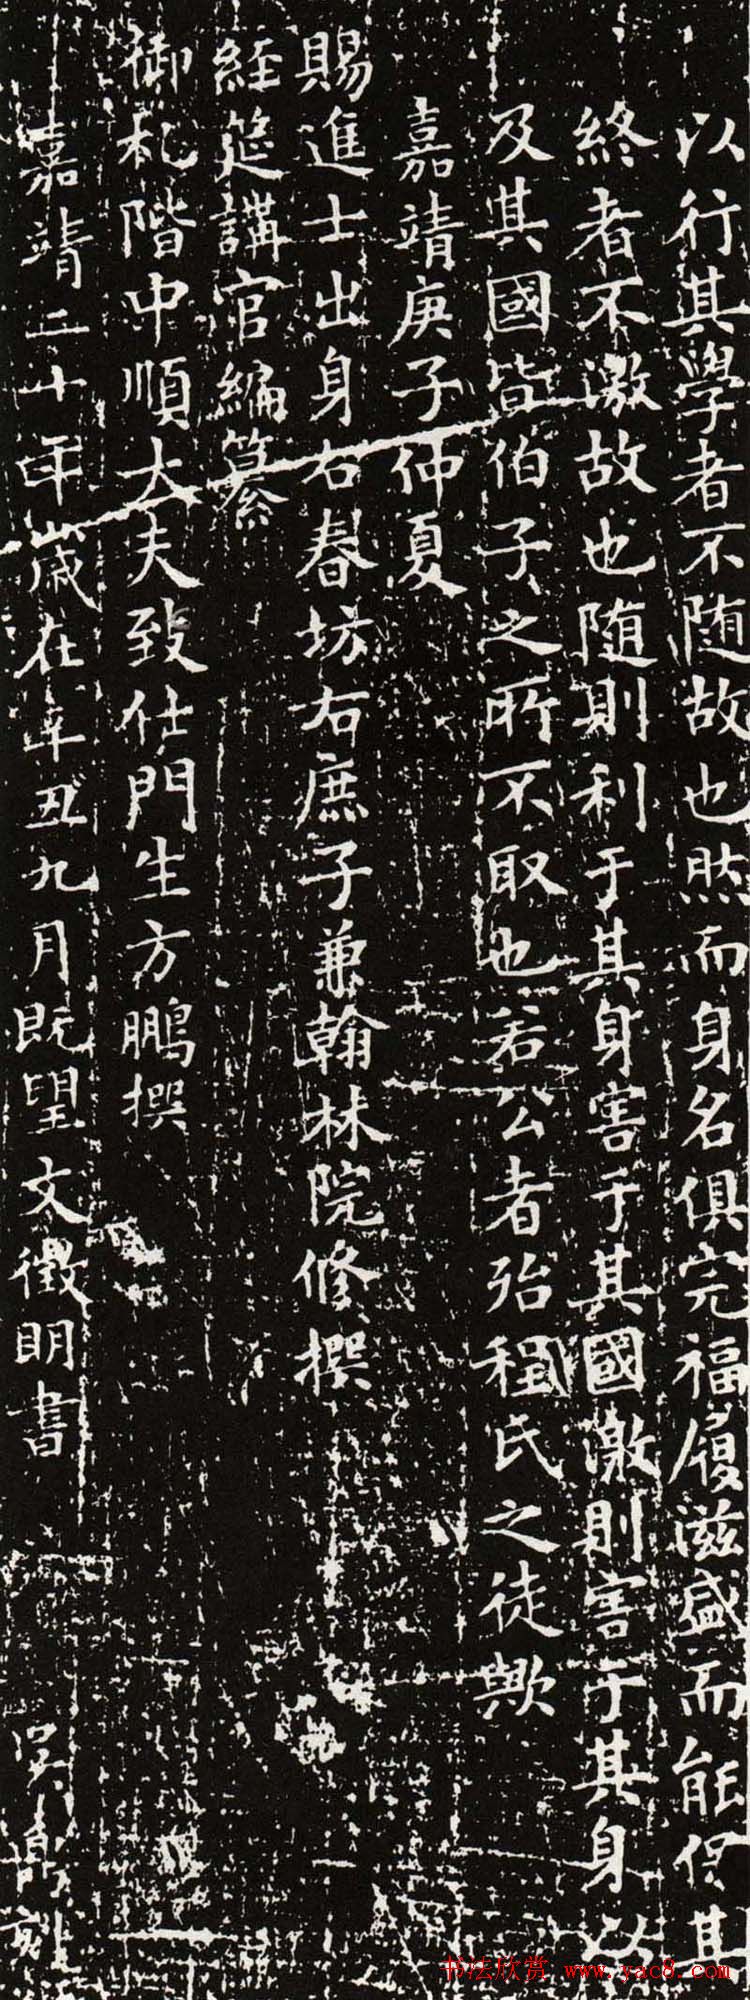 以行其學者不随故也然而身名俱完福履滋盛而能保其
終者不激故也随則利于其身害于其國激則害于其身以
及其國皆伯子之所不取也若公者殆程氏之徒歟
嘉靖庚子仲夏
賜進士出身右春坊右庶子兼翰林院修撰
經筵講官編纂
御札階中順大夫致仕門生方鵬撰
嘉靖二十年歲在辛丑九月既望文徵明書 吳鼒刻
书法欣赏 www.yac8.com